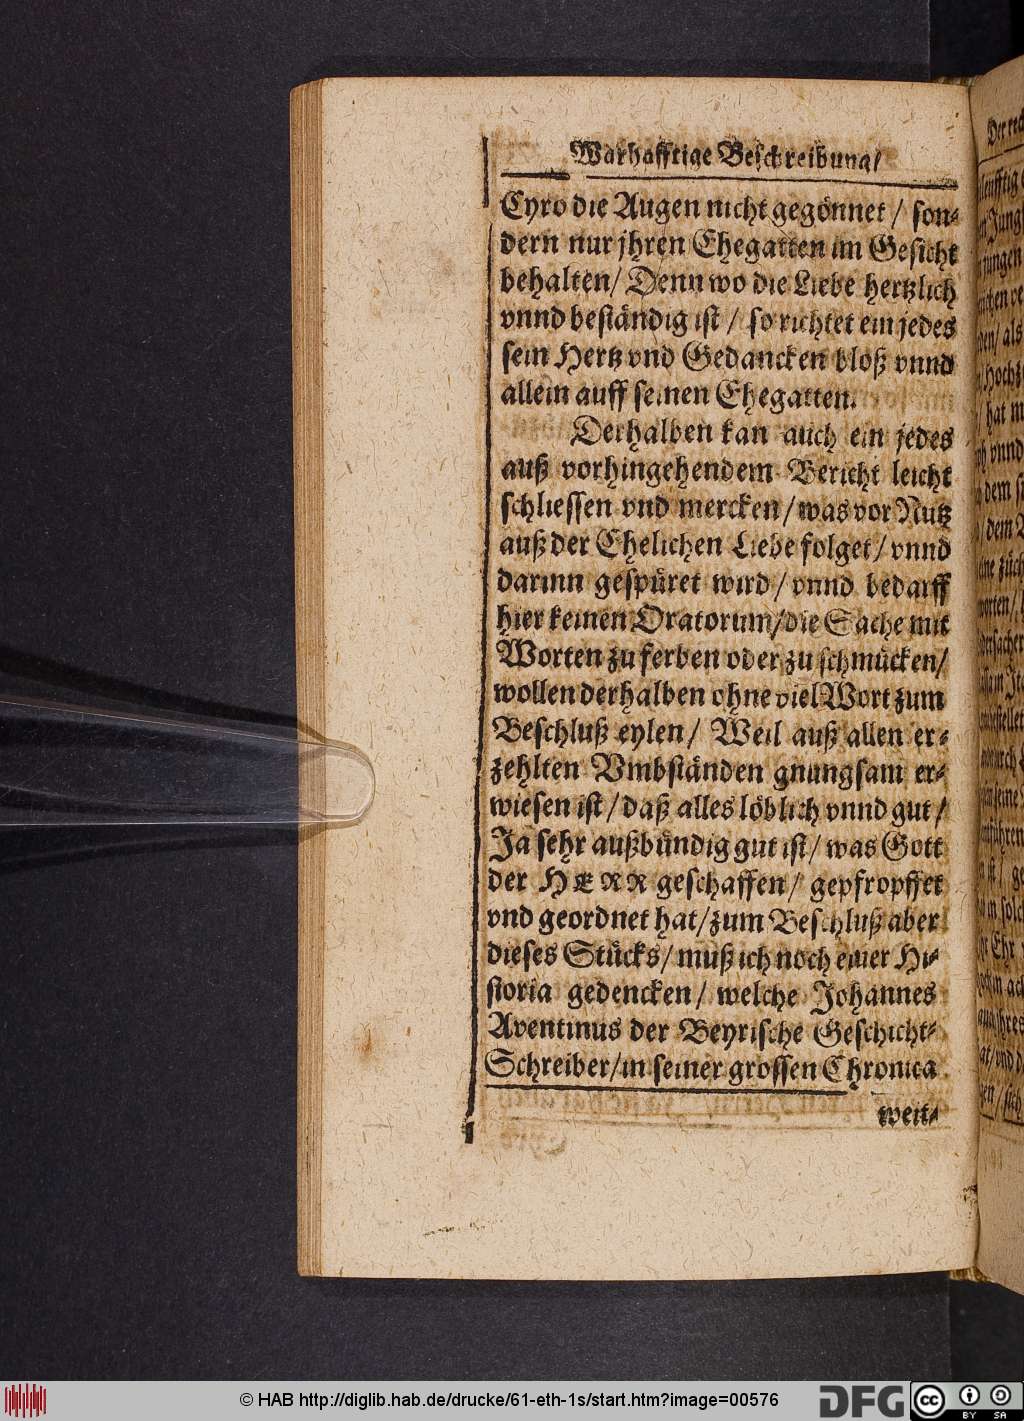 Warhafftige Beschreibung/
Cyro die Augen nicht gegönnet / son-
dern nur jhren Ehegatten im Gesicht
behalten/ Denn wo die Liebe hertzlich
vnnd beständig ist / so richtet ein jedes
sein Hertz vnd Gedancken bloß vnnd
allein auff seinen Ehegatten.
Derhalben kan auch ein jedes
auß vorhingehendem Bericht leicht
schliessen vnd mercken/ was vor Nutz
auß der Ehelichen Liebe folget/ vnnd
darinn gespüret wird/ vnnd bedarff
hier keinen Oratorum/ die Sache mit
Worten zu ferben oder zu schmücken/
wollen derhalben ohne viel Wort zum
Beschluß eylen/ Weil auß allen er-
zehlten Vmbständen gnungsam er-
wiesen ist/ daß alles löblich vnnd gut/
Ja sehr außbündig gut ist/ was Gott
der HERR geschaffen/ gepfropffet
vnd geordnet hat/ zum Beschluß aber
dieses Stücks/ muß ich noch einer Hi-
storia gedencken/ welche Johannes
Aventinus der Beyrische Geschicht-
Schreiber/ in seiner grossen Chronica
weit-
© HAB http://diglib.hab.de/drucke/61-eth-1s/start.htm?image=00576
DFG
cc BY SA